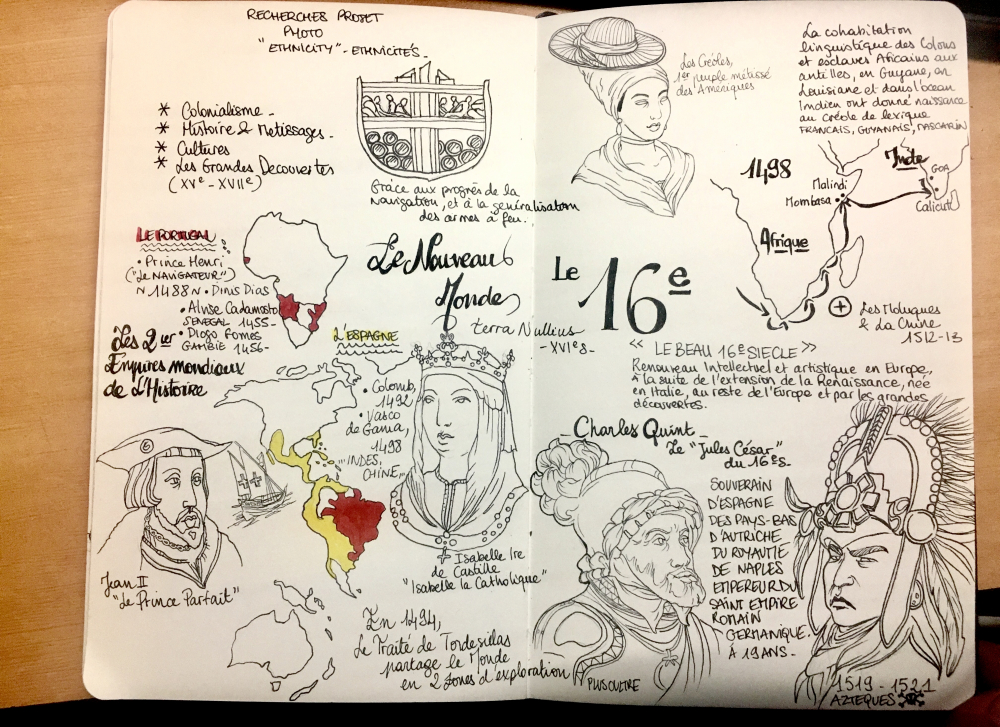 RECHERCHES PROJET
PHOTO
"ETHNICITY" - ETHNICITÉS -
* Colonialisme -
* Histoire & Métissages -
* Cultures
* Les Grandes Découvertes
(XVe - XVIIe)
Grâce aux progrès de la
Navigation, et à la généralisation
des armes à feu.
LE PORTUGAL
• Prince Henri
("Le NAVIGATEUR")
1488 • Dinis Dias
• Alvise Cadamosto
SENEGAL 1455 -
• Diogo Gomes
GAMBIE 1456 -
Le Nouveau
Monde
terra Nullius
- XVIes -
Les 2 1er
Empires mondiaux
de L'Histoire
L'ESPAGNE
• Colomb,
1492
• Vasco
de Gama,
1498
"INDES,
CHINE"
Jean II
"Le Prince Parfait"
Isabelle Ire
de Castille
"Isabelle la Catholique"
En 1494,
Le Traité de Tordesillas
partage le Monde
en 2 zones d'exploration
Les Créoles,
1er peuple métissé
des Amériques
La cohabitation
linguistique des Colons
et esclaves Africains aux
antilles, en Guyane, en
Louisiane et dans l'océan
Indien ont donné naissance
au créole de lexique
FRANCAIS, GUYANAIS, MASCARIN
1498
Inde
GOA
Calicut
Malindi
Mombasa
Afrique
+ Les Moluques
& La Chine
1512-13
Le 16e
<< LE BEAU 16e SIECLE >>
Renouveau Intellectuel et artistique en Europe,
à la suite de l'extension de la Renaissance, née
en Italie, au reste de l'Europe et par les grandes
découvertes.
- Charles Quint -
Le "Jules César"
du 16es -
SOUVERAIN
D'ESPAGNE
DES PAYS-BAS
D'AUTRICHE
DU ROYAUTÉ
DE NAPLES
EMPEREUR DU
SAINT EMPIRE
ROMAIN
GERMANIQUE.
À 19 ANS -
PLUS OULTRE
1519 - 1521
AZTEQUES